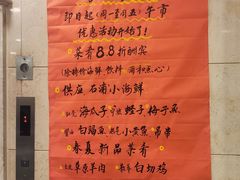 即日起(周一至周五)午市
优惠活动开始了!
菜肴8.8折酬宾
(除特价海鲜 饮料 面和点心)
供应 石浦小海鲜
海瓜子 蛏子 梅子鱼
白弱鱼 小黄鱼 吊带
春夏新品菜肴
草原羊肉 白切鸡